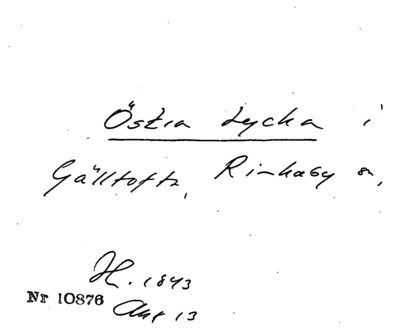 Östra Lycka i
Gälltofta, Rinkaby sn,
H. 1843
Nr 10876
Akt 13